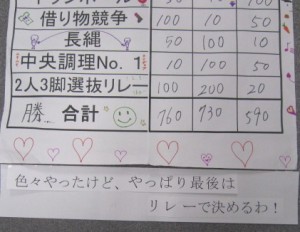 借り物競争 100 10 50
長縄 50 100 10
中央調理No. 1 10 100 50
2人3脚選抜リレー 100 200 20
勝 合計 760 730 590
色々やったけど、やっぱり最後は
リレーで決めるわ!